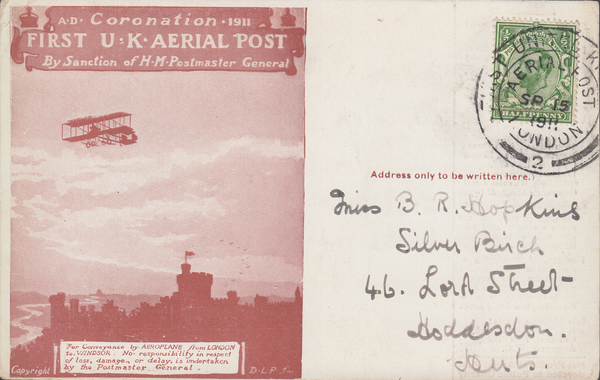 A·D· Coronation ·1911
FIRST U·K·AERIAL POST
By Sanction of H·M·Postmaster General
For Conveyance by AEROPLANE from LONDON
to WINDSOR. No responsibility in respect
of loss, damage, or delay, is undertaken
by the Postmaster General.
Copyright
D·L·P
HALFPENNY
FIRST UNITED K
AERIAL POST
SP 15
1911
LONDON
2
Address only to be written here.
Miss B. R. Hopkins
Silver Birch
46. Lord Street
Hoddesdon.
Herts.